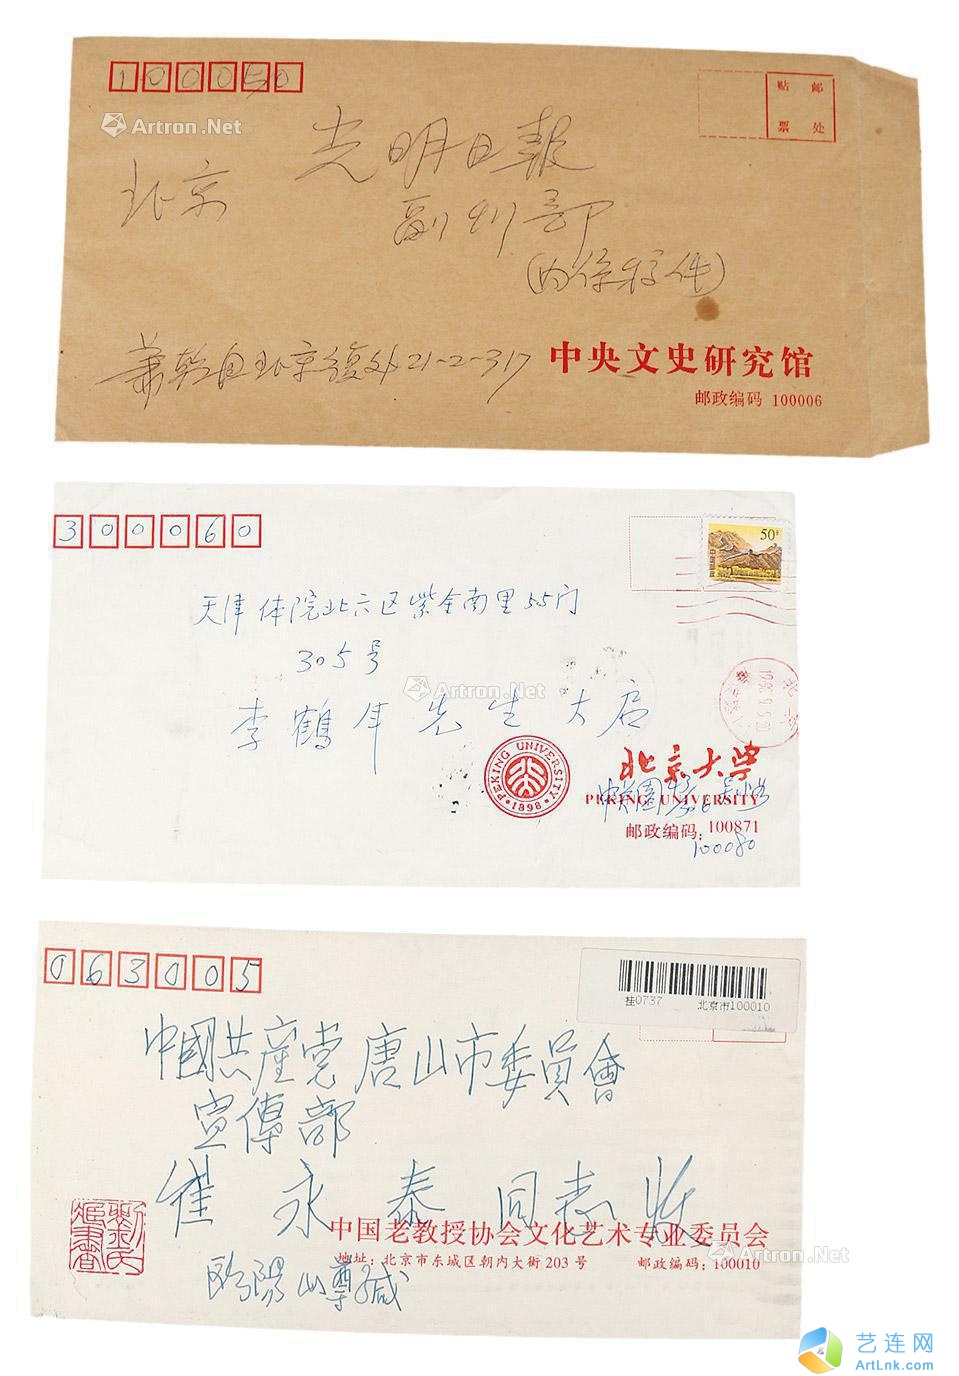 100050
贴 邮
票 处
Artron.Net
光明日報
北京
副刊部
(内係稿件)
萧乾自北京復外21-2-317
中央文史研究馆
邮政编码 100006
300060
50分
天津体院北六区紫金南里55门
305号
Artron.Net
李鶴年先生大启
PEKING UNIVERSITY
·1898·
北京大学
PEKING UNIVERSITY
中关园
邮政编码: 100871
100080
063005
桂0737 北京市100010
中國共産党唐山市委員會
宣傳部
崔永泰同志收
中国老教授协会文化艺术专业委员会
Artron.Net
地址: 北京市东城区朝内大街 203 号 邮政编码: 100010
欧陽山尊缄
艺连网
ArtLnk.com